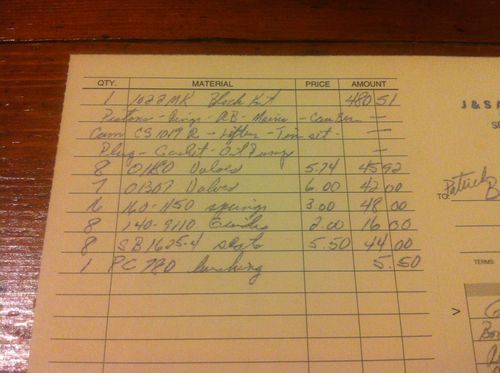 QTY. MATERIAL PRICE AMOUNT
1 1022MK Block Kit 480 51
Pistons - Rings - RB - Mains - Cam Brn -
Cam CS 1019 R - Lifters - Tim set -
Plug - Gasket - Oil Pump -
8 0180 Valves 5.74 45 92
7 01307 Valves 6.00 42 00
16 160-1150 springs 3.00 48 00
8 140-9110 Guides 2.00 16 00
8 SB1625-4 seats 5.50 44 00
1 PC 780 bushing 5.50
J & S
TO: Patrick
TERMS